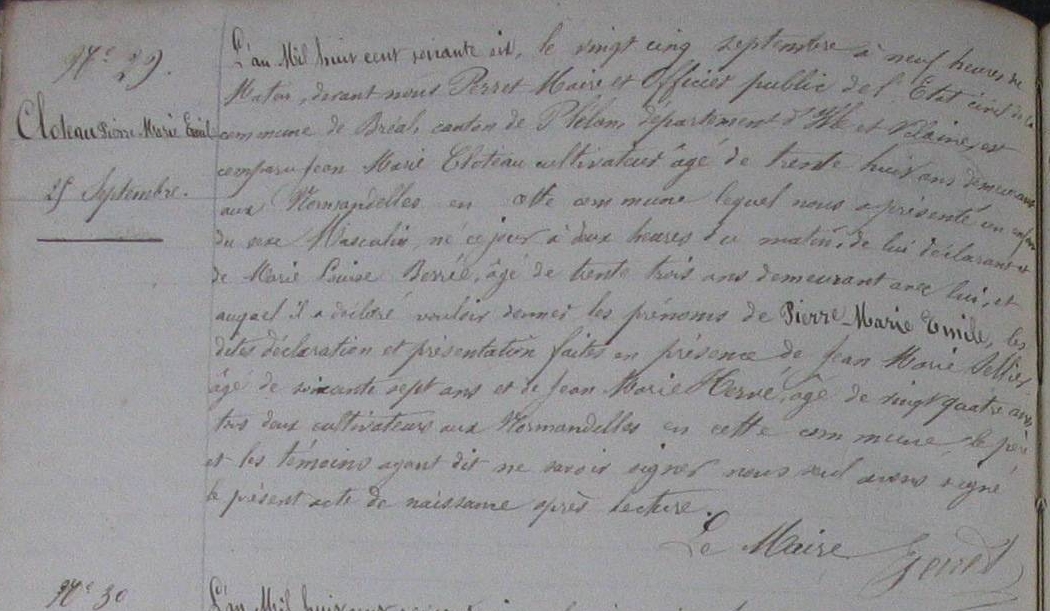 N° 29.
Cloteau Pierre Marie Emile
25 Septembre.
L'an Mil huit cent soixante six, le vingt cinq septembre à neuf heures du
Matin, devant nous Perret Maire et Officier public de l'Etat civil de la
commune de Bréal, canton de Plélan, département d'Ille et Vilaine, est
comparu Jean Marie Cloteau cultivateur âgé de trente huit ans demeurant
aux Normandelles en cette commune lequel nous a présenté un enfant
du sexe Masculin, né ce jour à deux heures du matin, de lui déclarant et
de Marie Louise Berrée, âgé de trente trois ans demeurant avec lui, et
auquel il a déclaré vouloir donner les prénoms de Pierre-Marie Emile, les
dites déclaration et présentation faites en présence de Jean Marie Sellier
âgé de soixante sept ans et de Jean Marie Hervé, âgé de vingt quatre ans
tous deux cultivateurs aux Normandelles en cette commune, le père
et les témoins ayant dit ne savoir signer nous seul avons signé
le présent acte de naissance après lecture.
Le Maire Perret
N° 30
L'an Mil huit cent